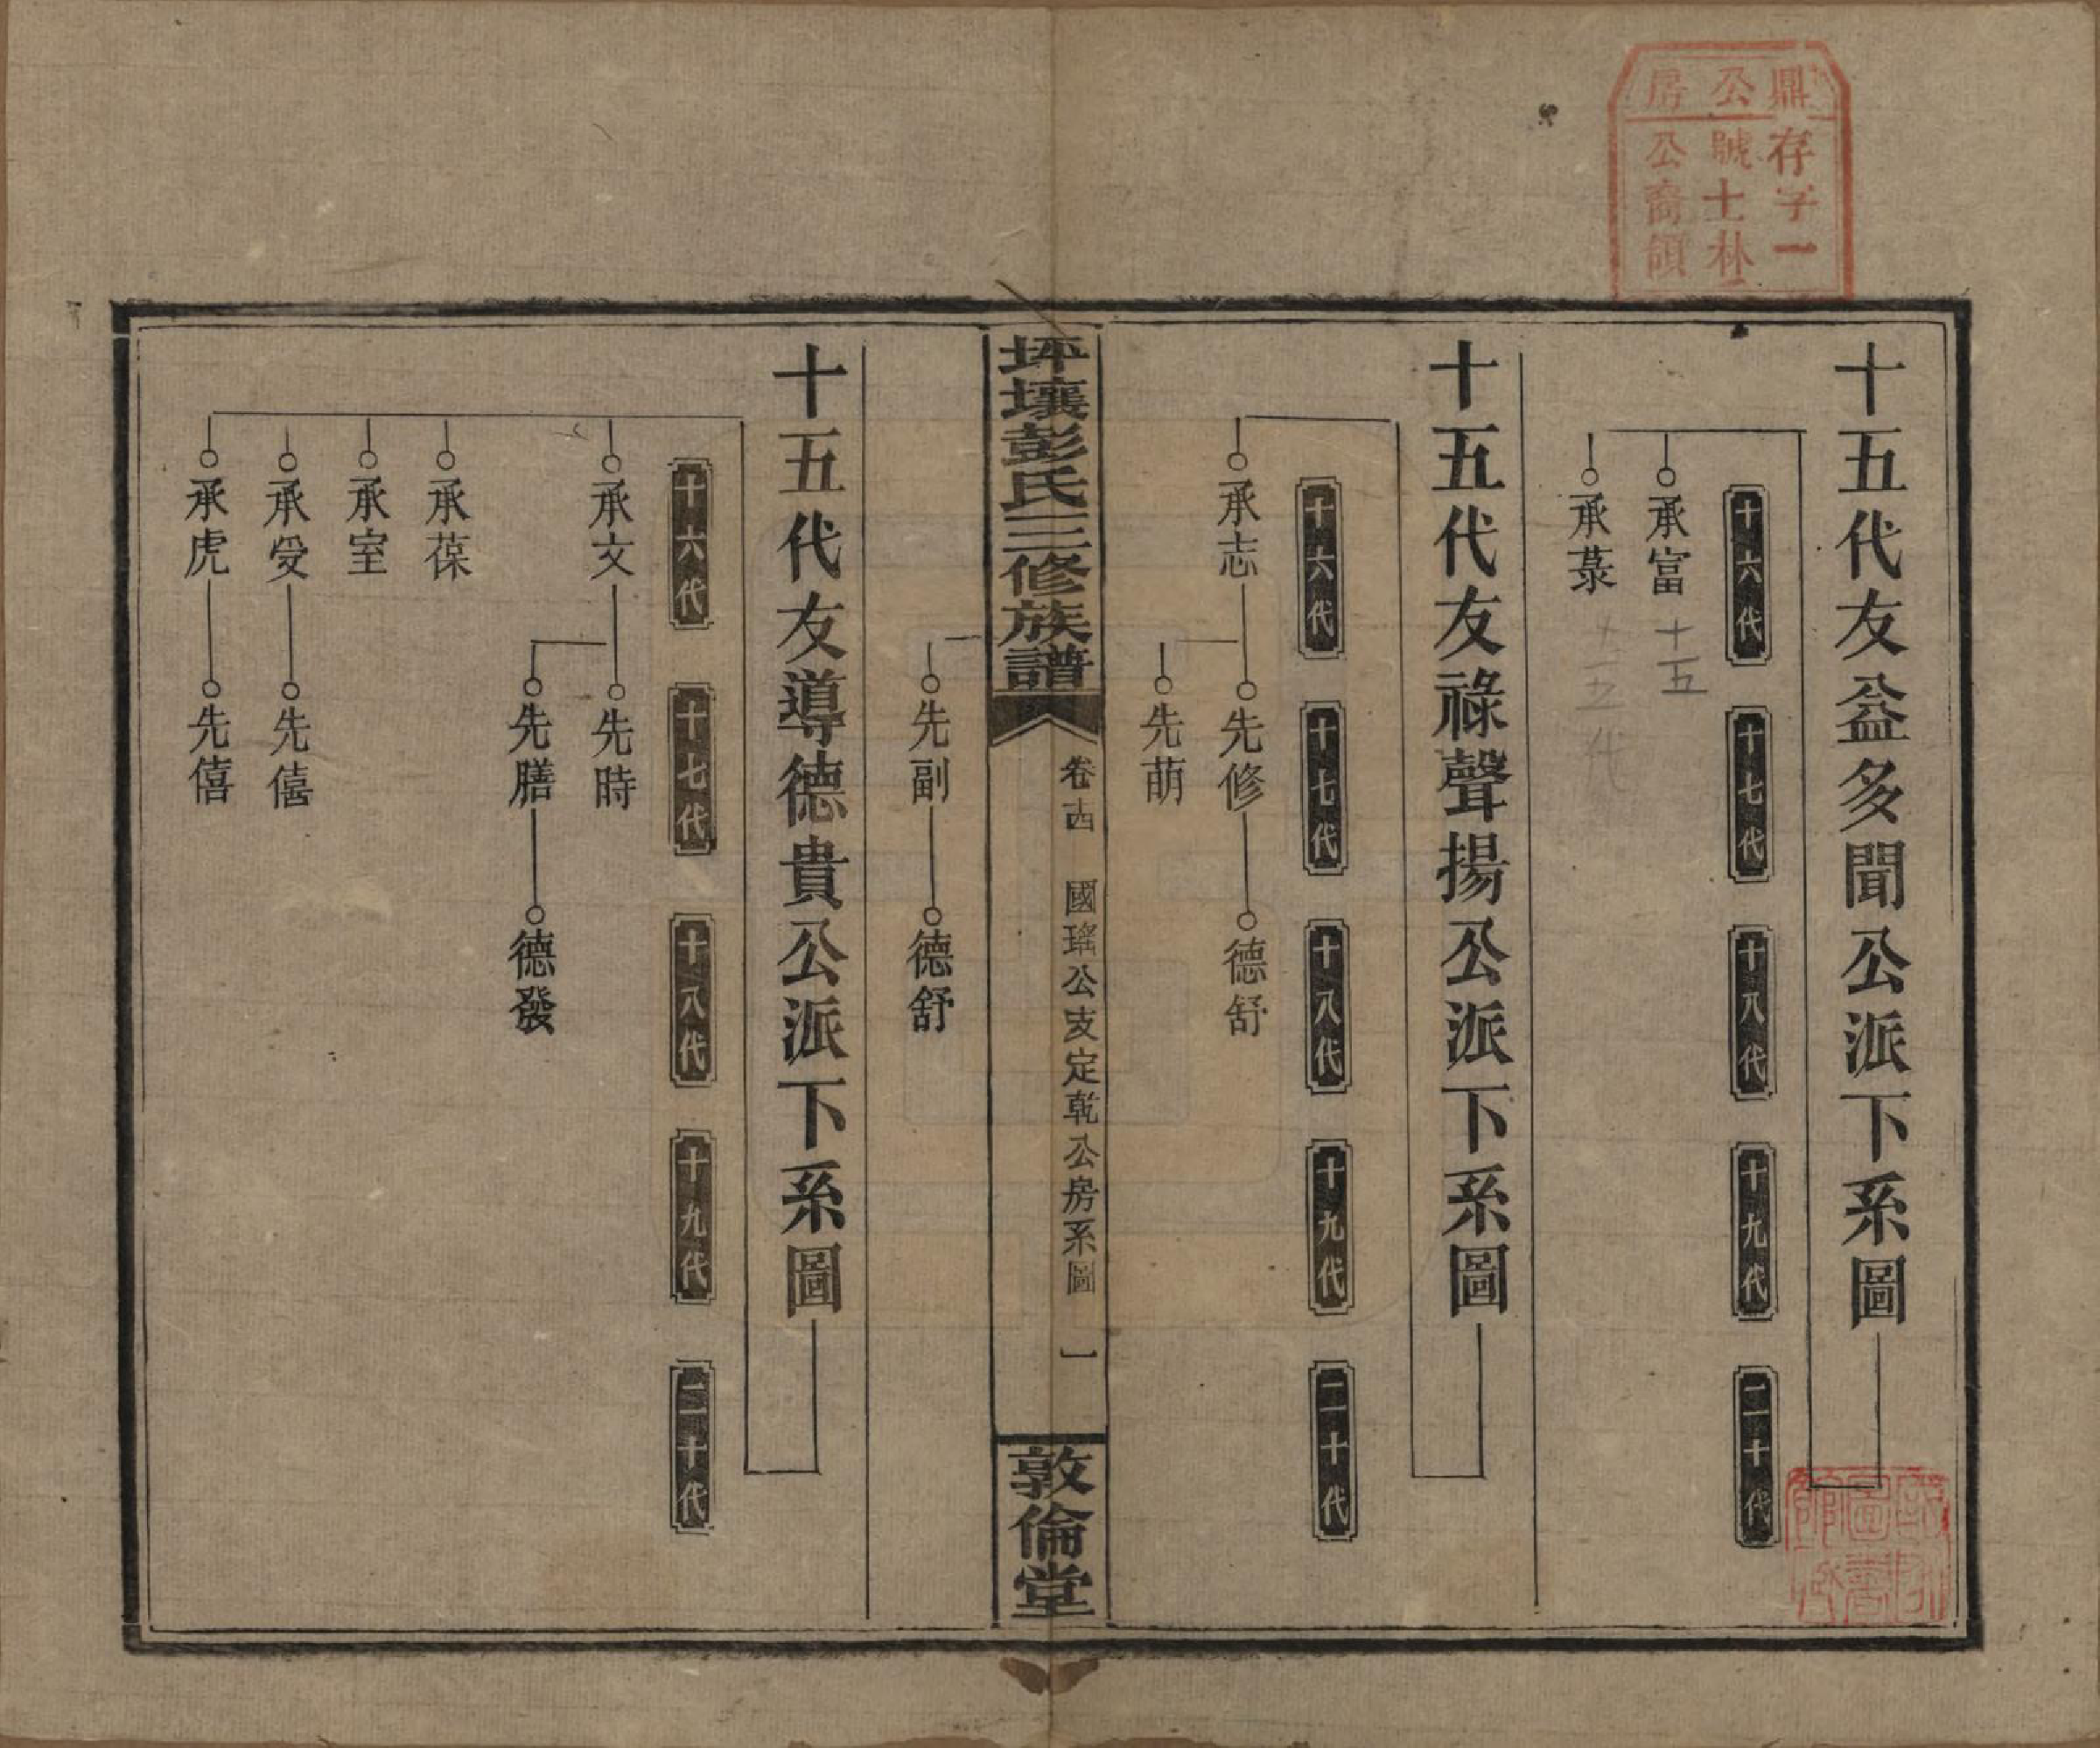 鼎公房
存字一
號士朴
公裔領
十五代友益多聞公派下系圖
十六代 十七代 十八代 十九代 二十代
承富 十五
承菉
十五代友祿聲揚公派下系圖
十六代 十七代 十八代 十九代 二十代
承志 先修 德舒
先萠
坪壤彭氏三修族譜 卷十四 國瑤公支定乾公房系圖 一 敦倫堂
先副 德舒
十五代友導德貴公派下系圖
十六代 十七代 十八代 十九代 二十代
承文 先時
先膳 德發
承葆
承室
承受 先僖
承虎 先僖